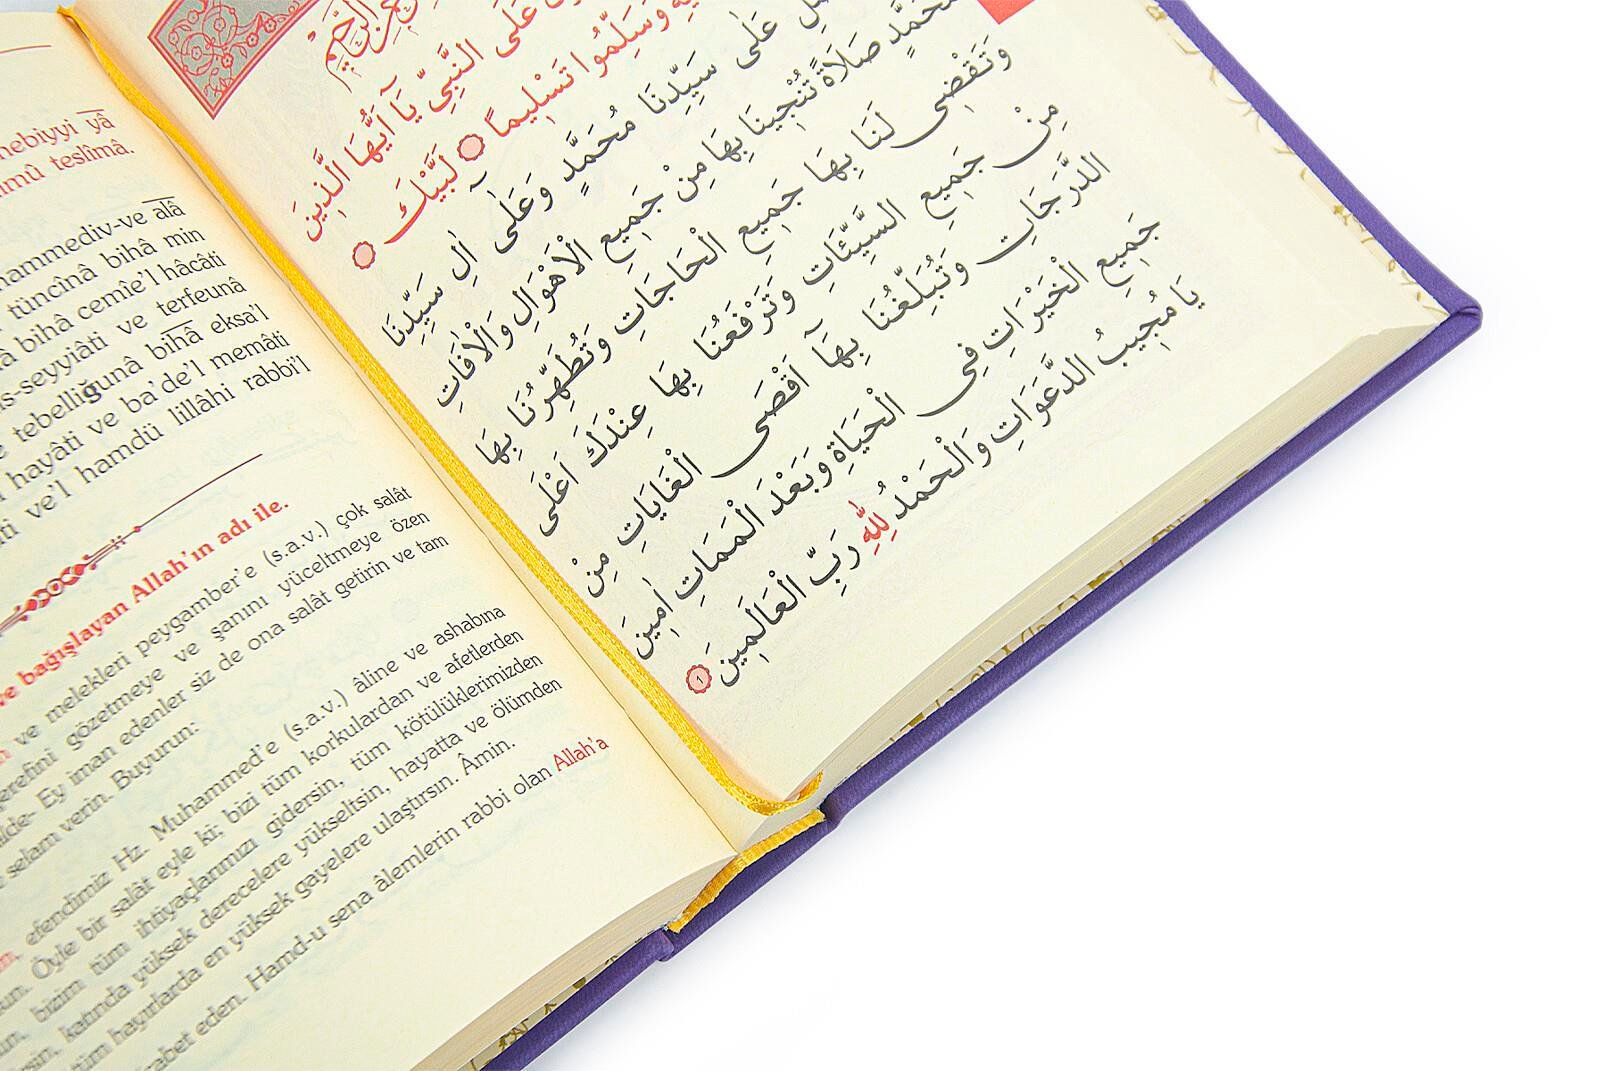 nebiyyi yâ
teslîmâ.
tüncînâ bihâ min
bihâ cemîe'l hâcâti
ve terfeunâ
tebelliğunâ bihâ eksa'l
hayâti ve ba'de'l memâti
ve'l hamdü lillâhi rabbi'l
ve bağışlayan Allah'ın adı ile.
ve melekleri peygamber'e (s.a.v.) çok salât
gözetmeye ve şanını yüceltmeye özen
Ey iman edenler siz de ona salât getirin ve tam
selam verin. Buyurun:
efendimiz Hz. Muhammed'e (s.a.v.) âline ve ashabına
Öyle bir salât eyle ki; bizi tüm korkulardan ve afetlerden
bizim tüm ihtiyaçlarımızı gidersin, tüm kötülüklerimizden
katında yüksek derecelere yükseltsin, hayatta ve ölümden
tüm hayırlarda en yüksek gayelere ulaştırsın. Âmin.
eden. Hamd-u sena âlemlerin rabbi olan Allah'a
الرَّحِيمِ
عَلَى النَّبِيِّ يَآ اَيُّهَا الَّذِينَ
وَسَلِّمُوا تَسْلِيمًا لَبَّيْكَ
عَلَى سَيِّدِنَا مُحَمَّدٍ وَعَلٰٓى اٰلِ سَيِّدِنَا
مُحَمَّدٍ صَلَاةً تُنْجِينَا بِهَا مِنْ جَمِيعِ الْاَهْوَالِ وَالْاٰفَاتِ
وَتَقْضِى لَنَا بِهَا جَمِيعَ الْحَاجَاتِ وَتُطَهِّرُنَا بِهَا
مِنْ جَمِيعِ السَّيِّئَاتِ وَتَرْفَعُنَا بِهَا عِنْدَكَ اَعْلَى
الدَّرَجَاتِ وَتُبَلِّغُنَا بِهَآ اَقْصَى الْغَايَاتِ مِنْ
جَمِيعِ الْخَيْرَاتِ فِى الْحَيَاةِ وَبَعْدَ الْمَمَاتِ اٰمِينَ
يَا مُجِيبُ الدَّعَوَاتِ وَالْحَمْدُ لِلّٰهِ رَبِّ الْعَالَمِينَ ١